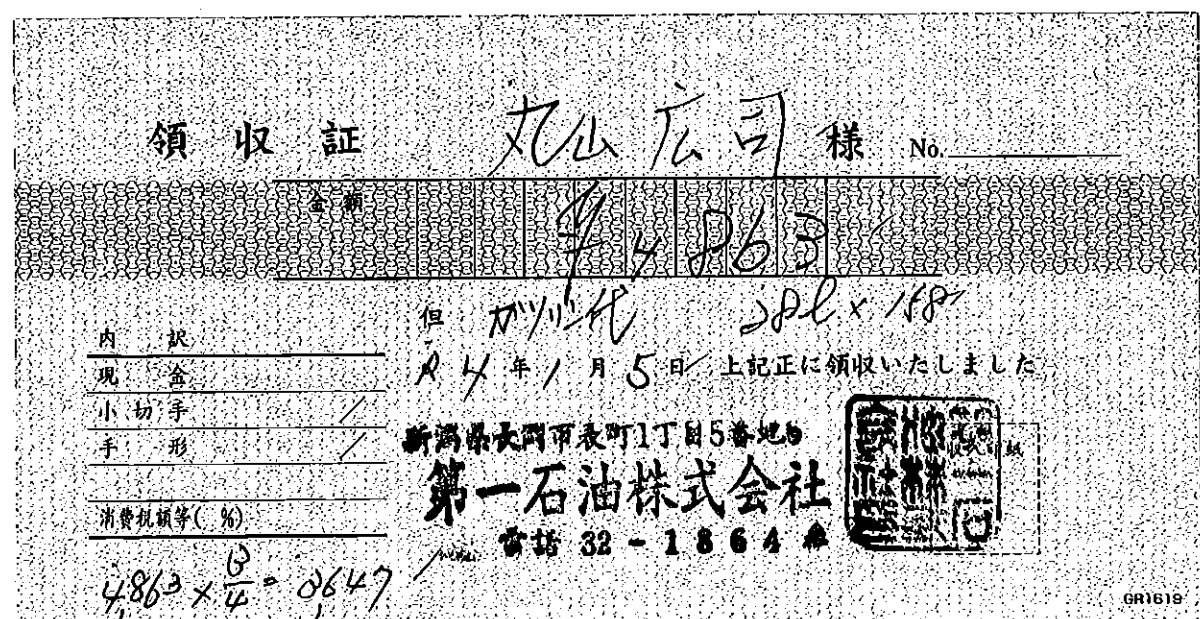 領収証 丸山広司 様 No.
金額 ¥4863
但 ガソリン代 28ℓ×158
内訳
R4年1月5日 上記正に領収いたしました
現金
小切手
手形
新潟県長岡市表町1丁目5番地
第一石油株式会社
電話 32-1864番
消費税額等( %)
4,863×3/4=3647
GR1619